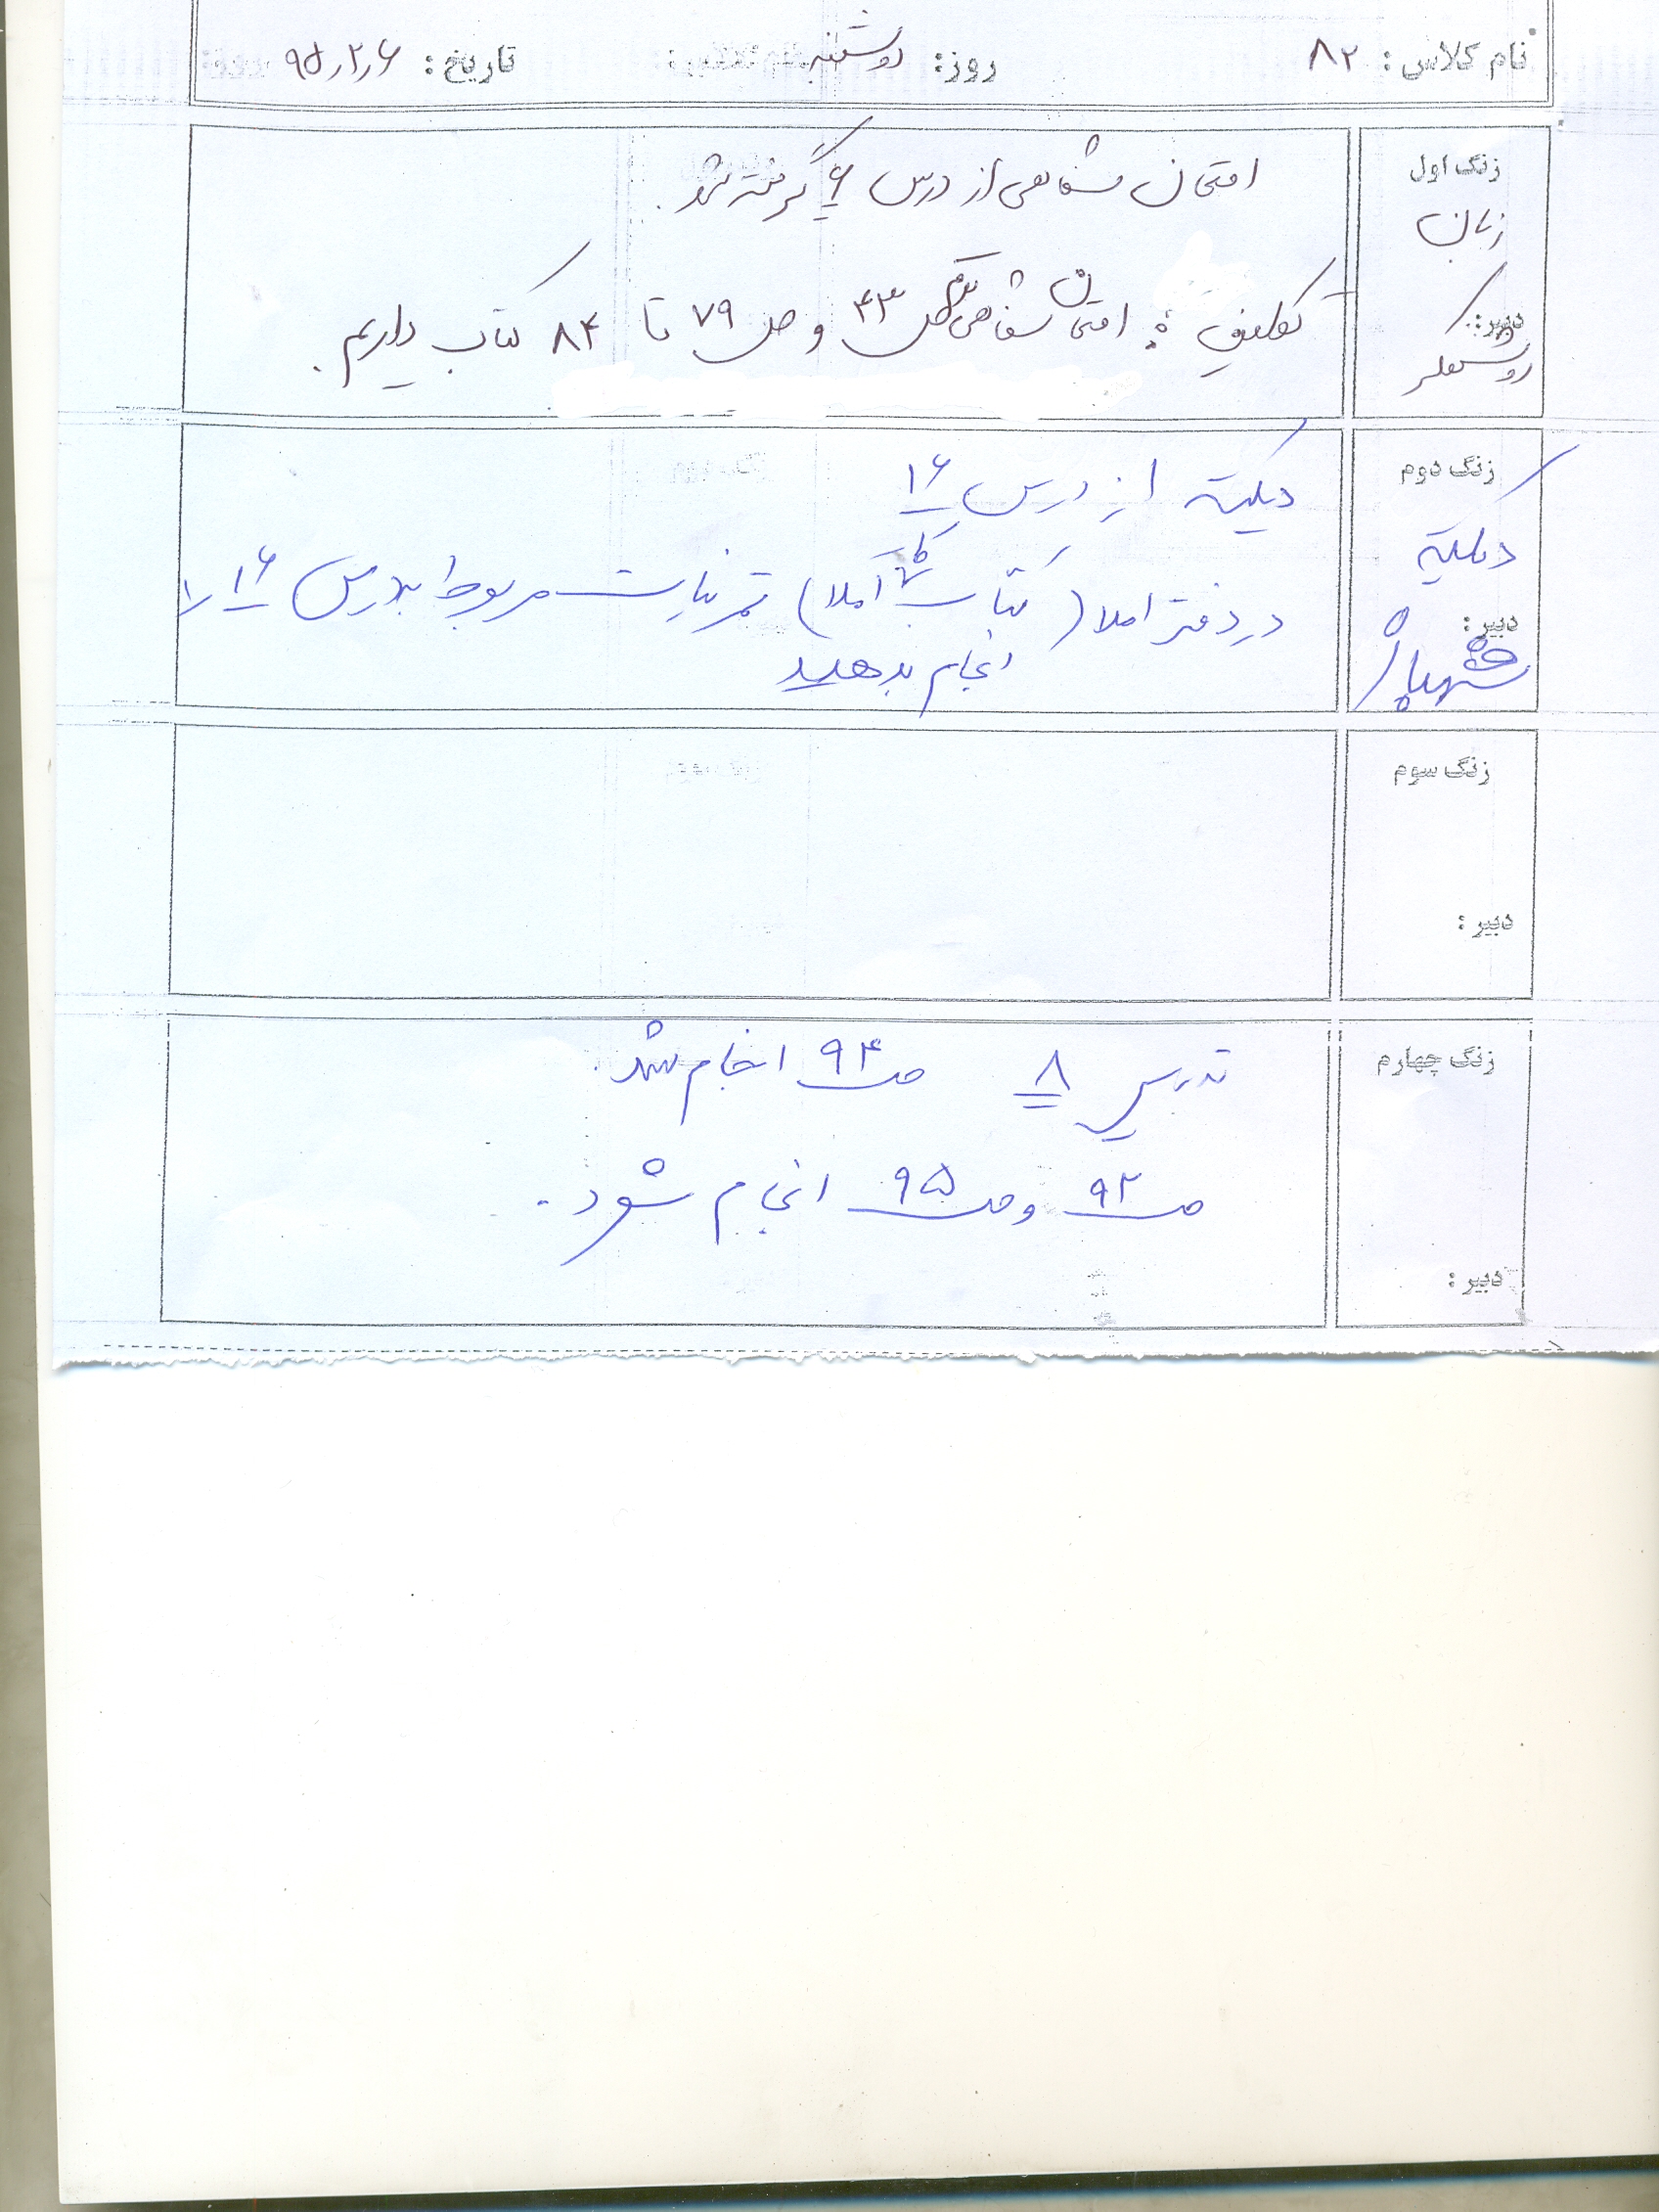 نام کلاس: ۸۲ روز: دوشنبه تاریخ: ۹۵٫۲٫۶
زنگ اول
زبان
دبیر:
امتحان شفاهی از درس ۶ گرفته شد.
تکلیف: امتحان شفاهی ص ۴۳ و ص ۷۹ تا ۸۴ کتاب داریم.
زنگ دوم
دیکته
دبیر:
دیکته از درس ۱۶
در دفتر املا (کتاب کار املا) تمرینات مربوط به درس ۱۶ را
انجام بدهید
زنگ سوم
دبیر:
زنگ چهارم
دبیر:
تدریس ۸ ص ۹۴ انجام شد.
ص ۹۲ و ص ۹۵ انجام شود.